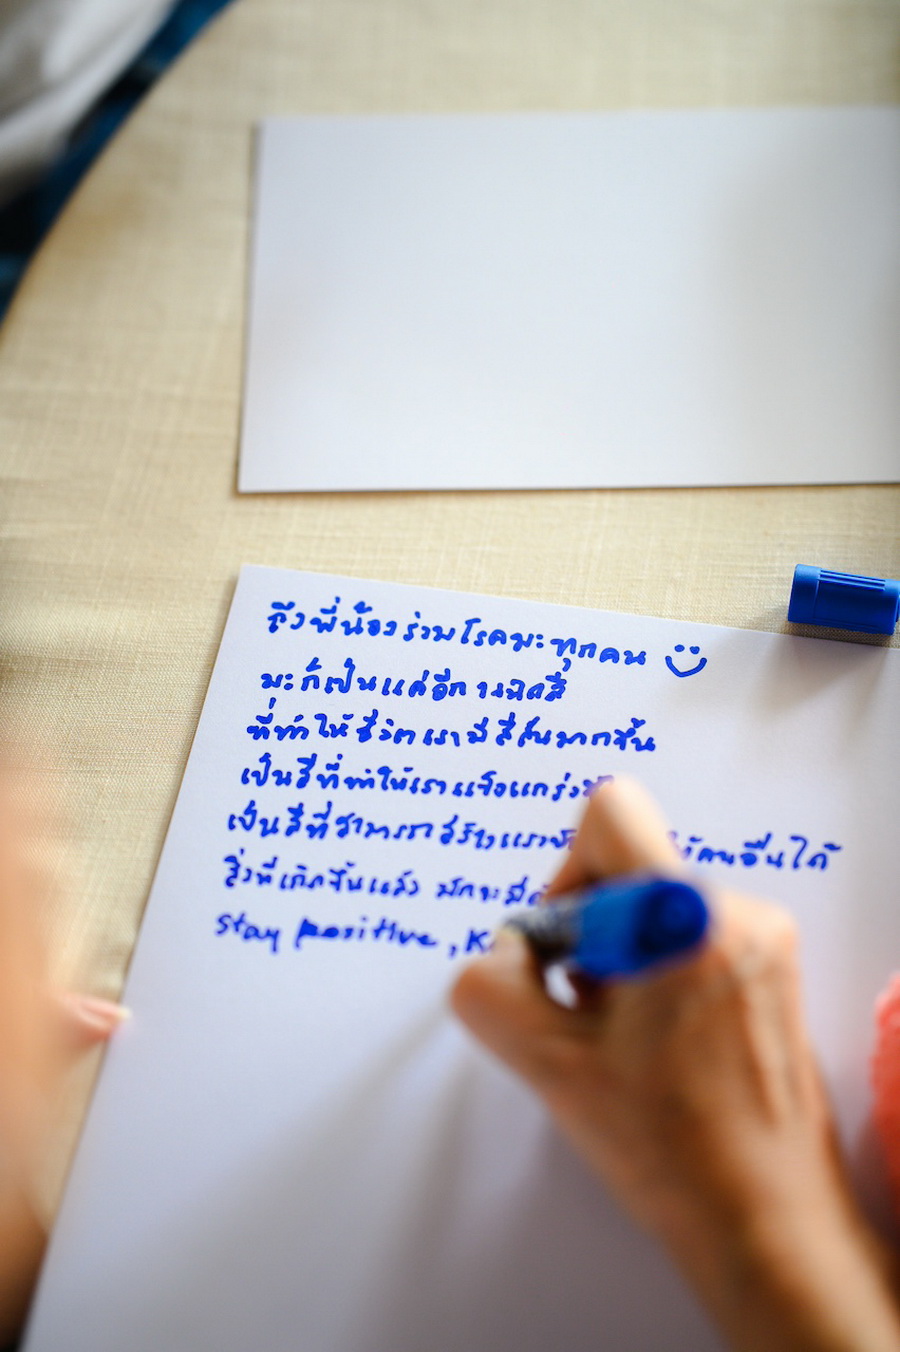 ถึงพี่น้องร่วมโรคมะทุกคน
มะก็เป็นแค่อีก
ที่ทำให้ชีวิตเรามีสีสันมากขึ้น
เป็นสีที่ทำให้เราแข็งแกร่ง
เป็นสีที่สามารถสร้างแรง ให้คนอื่นได้
สิ่งที่เกิดขึ้นแล้ว มักจะมี
Stay positive,